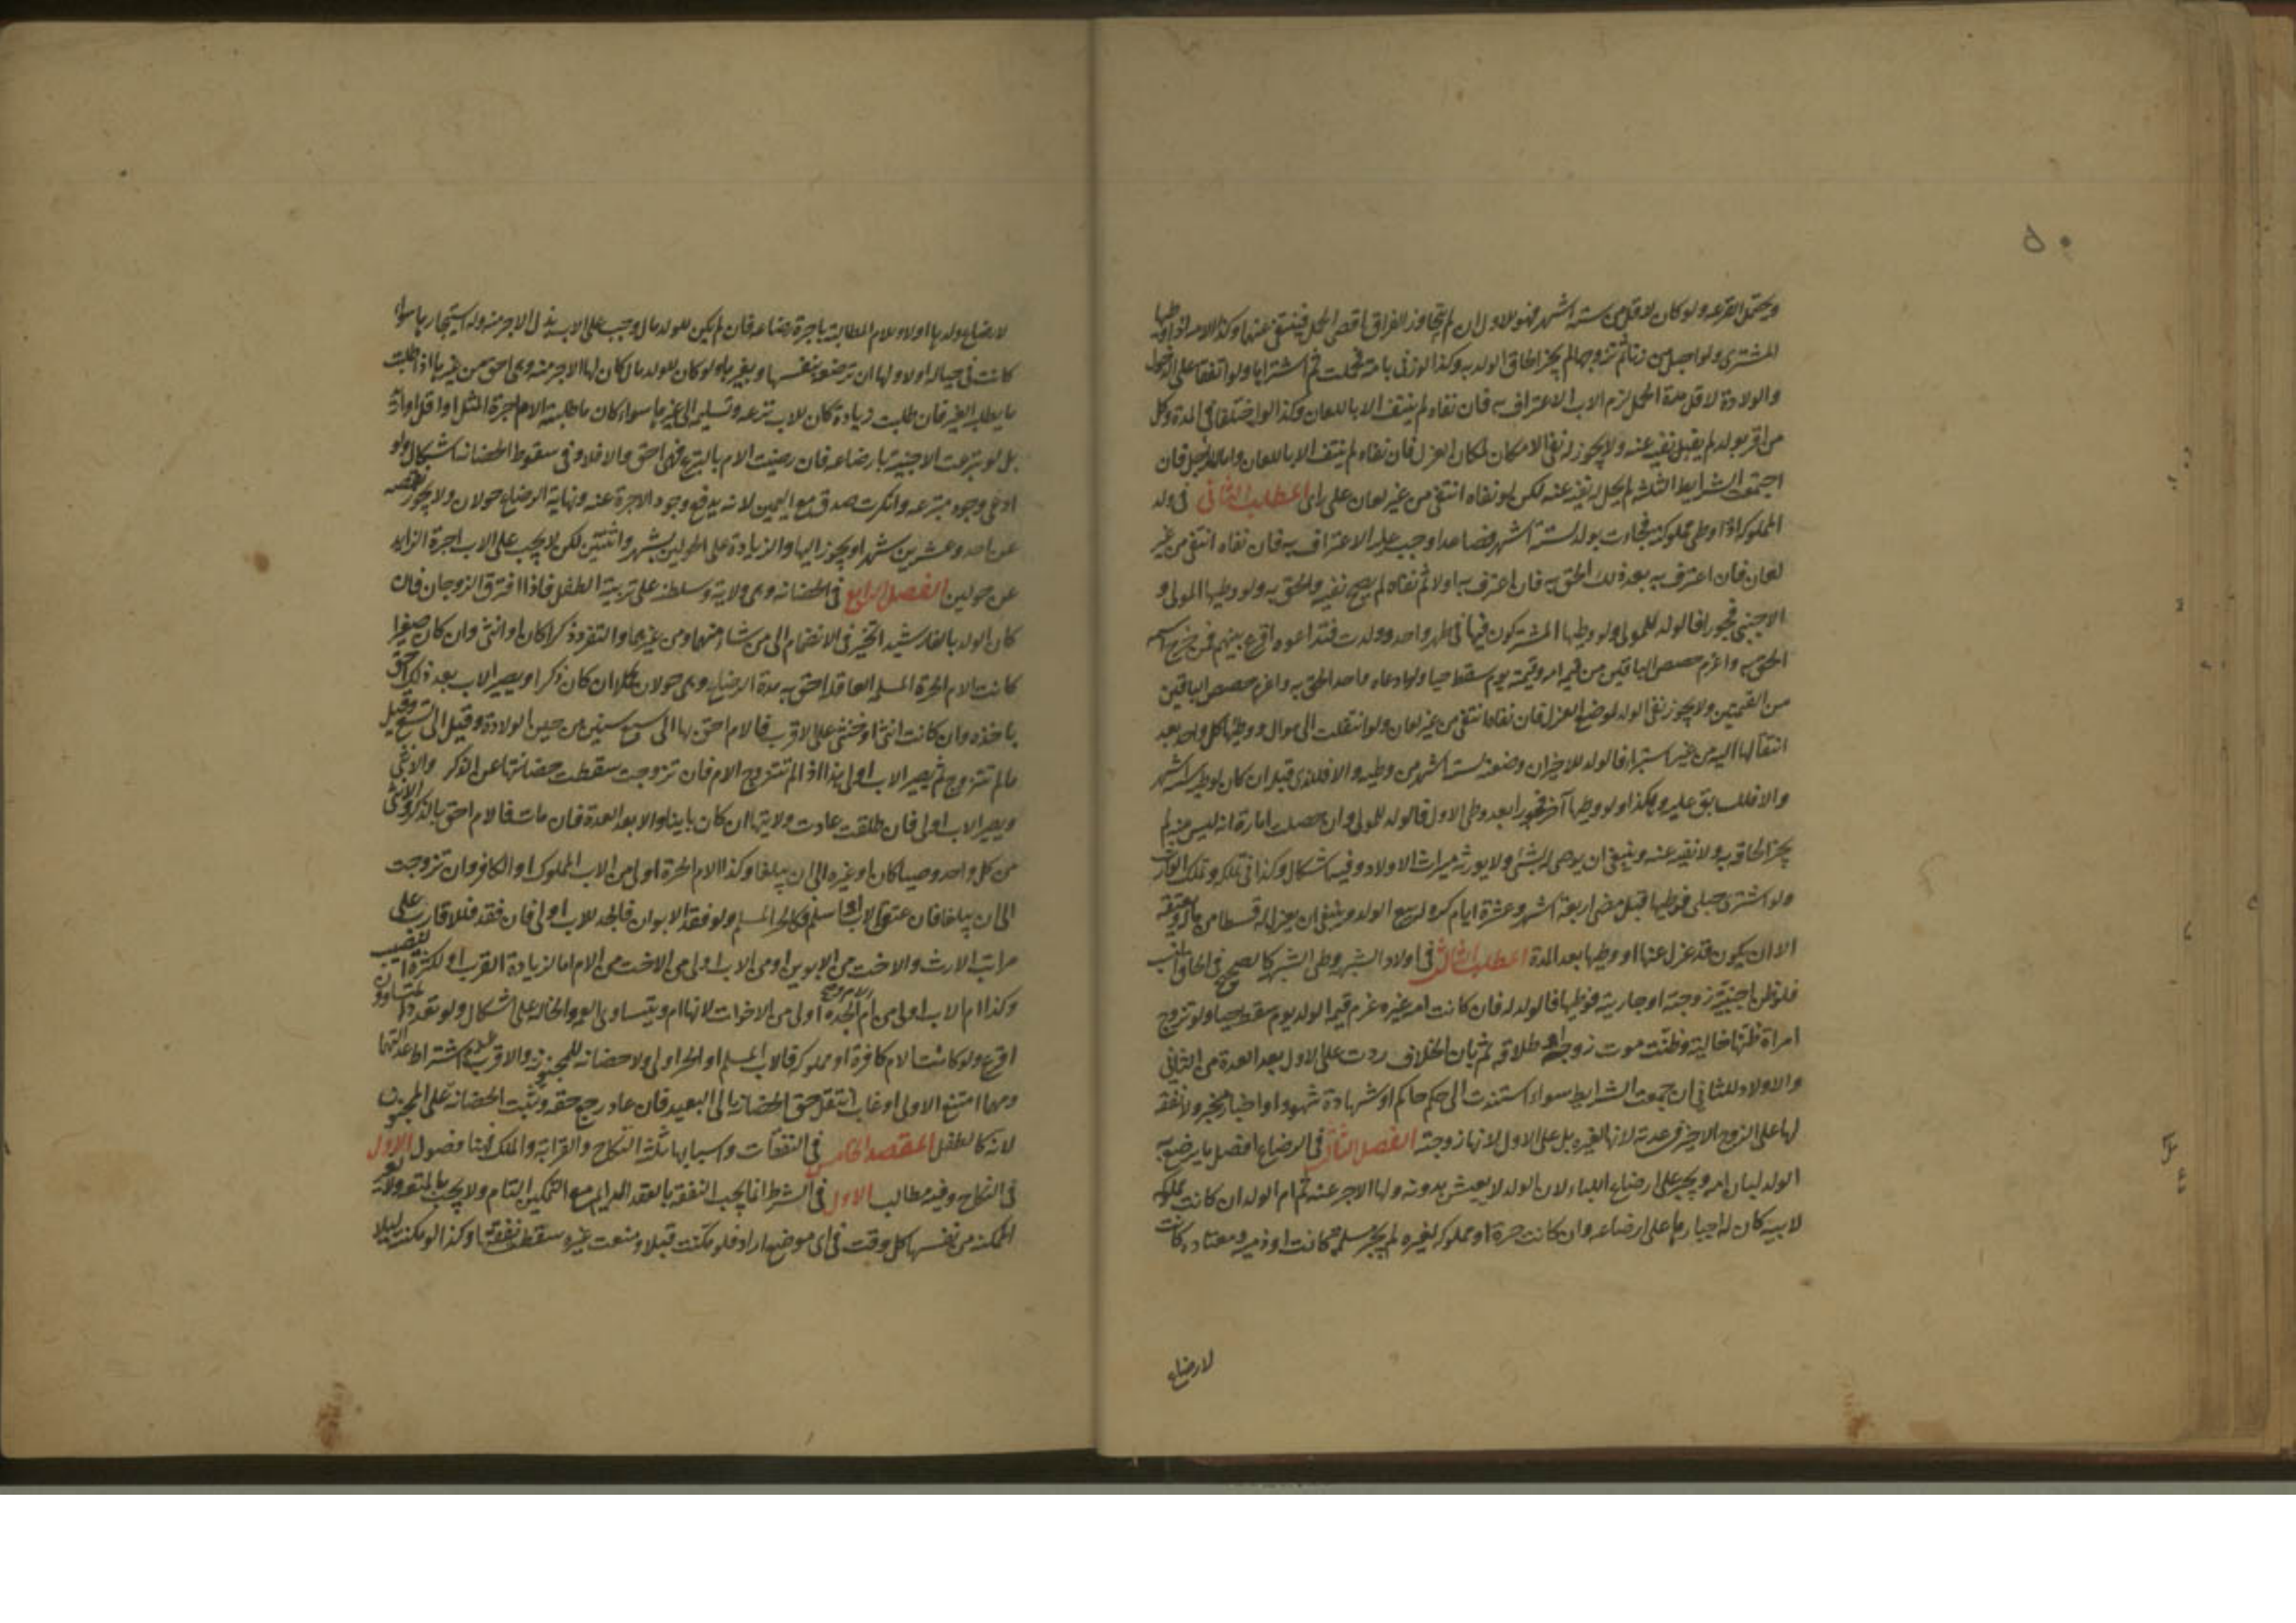 ٥٠
ويحتمل القرعه ولو كان لاقل من ستة اشهر فهو للاول ان لم يتجاوز الفراق اقصى الحمل فينتفى عنهما وكذا الامة لو وطيها
المشترى ولو احبل من زنا ثم تزوجها لم يجز الحاق الولد به وكذا لو زنى بامة فحملت ثم اشتراها ولو اتفقا على الدخول
والولادة لاقل مدة الحمل لزم الاب الاعتراف به فان نفاه لم ينتف الا باللعان وكذا لو اختلفا فى المدة وكل
من اقر بولد لم يقبل نفيه عنه ولا يجوز له نفى الامكان لمكان العزل فان نفاه لم ينتف الا باللعان فان
اجتمعت الشرايط الثلثة لم يحل له نفيه عنه لكن لو نفاه انتفى من غير لعان على راى المطلب الثانى فى ولد
المملوكة اذا وطى مملوكته فجاءت بولد لستة اشهر فصاعدا وجب عليه الاعتراف به فان نفاه انتفى من غير
لعان فان اعترف به بعد ذلك الحق به فان اعترف به اولا ثم نفاه لم يصح نفيه والحق به ولو وطيها المولى و
الاجنبى فجورا فالولد للمولى ولو وطيها المشتركون فيها فى طهر واحد وولدت فتداعوه اقرع بينهم فمن خرج اسمه
الحق به واغرم حصص الباقين من قيمة امه وقيمته يوم سقط حيا ولو ادعاه واحد الحق به واغرم حصص الباقين
من القيمتين ولا يجوز نفى الولد لموضع العزل فان نفاه انتفى من غير لعان ولو انتقلت الى موال ووطيها كل واحد بعد
انتقالها اليه من غير استبراء فالولد للاخير ان وضعته لستة اشهر من وطيه والا فللذى قبله ان كان لوطيه ستة اشهر
والا فللسابق عليه وهكذا ولو وطيها آخر فجورا بعد وطى الاول فالولد للمولى وان حصلت امارة انه ليس منه لم
يجز الحاقه به ولا نفيه عنه وينبغى ان يوصى له بشئ ولا يورثه ميراث الاولاد وفيه اشكال وكذا فى تملكه وتملك الوارث
ولو اشترى حبلى فوطيها قبل مضى اربعة اشهر وعشرة ايام كره له بيع الولد وينبغى ان يعزل له قسطا من ماله ويعتقه
الا ان يكون قد عزل عنها او وطيها بعد المدة المطلب الثالث فى اولاد الشبهة وطى الشبهة كالصحيح فى الحاق النسب
فلو ظن اجنبية زوجته او جاريته فوطيها فالولد له فان كانت امة غيره غرم قيمة الولد يوم سقط حيا ولو تزوج
امراة ظنها خالية وظنت موت زوجها او طلاقه ثم بان الخلاف ردت على الاول بعد العدة من الثانى
والاولاد للثانى ان جمعت الشرايط سواء استندت الى حكم حاكم او شهادة شهود او اخبار مخبر ولا نفقة
لها على الزوج الاخير فى عدته لانها لغيره بل على الاول لانها زوجته الفصل الثالث فى الرضاع افضل ما يرضع به
الولد لبان امه ويجبر على ارضاع اللباء لان الولد لا يعيش بدونه ولها الاجر عنه ثم ام الولد ان كانت مملوكة
لابيه كان له اجبارها على ارضاعه وان كانت حرة او مملوكة لغيره لم يجبر مسلمة كانت او ذمية معتادة كانت
لارضاع
لارضاع ولدها او لا وللام المطالبة باجرة رضاعه فان لم يكن للولد مال وجب على الاب بذل الاجر منه وله استيجارها سواء
كانت فى حباله او لا ولها ان ترضعه بنفسها وبغيرها ولو كان للولد مال كان لها الاجر منه وهى احق من غيرها اذا طلبت
ما يطلبه الغير فان طلبت زيادة كان للاب نزعه وتسليمه الى غيرها سواء كان ما طلبته الام اجرة المثل او اقل او ازيد
بل لو تبرعت الاجنبية بارضاعه فان رضيت الام بالتبرع فهى احق والا فلا وفى سقوط الحضانة اشكال ولو
ادعى وجود متبرعه وانكرت صدق مع اليمين لانه يدفع وجود الاجرة عنه ونهاية الرضاع حولان ولا يجوز نقصه
عن احد وعشرين شهرا ويجوز اليها والزيادة على الحولين بشهر واثنين لكن لا يجب على الاب اجرة الزايد
عن حولين الفصل الرابع فى الحضانة وهى ولاية وسلطنة على تربية الطفل فاذا افترق الزوجان فان
كان الولد بالغا رشيدا تخير فى الانضمام الى من شاء منهما ومن غيرهما والتفرد ذكرا كان او انثى وان كان صغيرا
كانت الام الحرة المسلمة العاقلة احق به مدة الرضاع وهى حولان كملا ان كان ذكرا ويصير الاب بعد ذلك احق
باخذه وان كانت انثى او خنثى على الاقرب فالام احق بها الى سبع سنين من حين الولادة وقيل الى تسع وقيل
ما لم تتزوج ثم يصير الاب اولى هذا اذا لم تتزوج الام فان تزوجت سقطت حضانتها عن الذكر والانثى
ويصير الاب اولى فان طلقت عادت ولايتها ان كان باينا والا بعد العدة فان مات فالام احق بالذكر والانثى
من كل واحد وصيا كان او غيره الى ان يبلغا وكذا الام الحرة اولى من الاب المملوك او الكافر وان تزوجت
الى ان يبلغا فان عتق الاب او اسلم فكالحر المسلم ولو فقد الابوان فالجد للاب اولى فان فقد فللاقارب على
مراتب الارث والاخت من الابوين او من الاب اولى من الاخت من الام اما لزيادة القرب او لكثرة النصيب
وكذا ام الاب اولى من ام الام والجدة اولى من الاخوات لانها ام ويتساوى العمة والخالة على اشكال ولو تعدد المتساوون
اقرع ولو كانت الام كافرة او مملوكة فالاب المسلم او الحر اولى ولا حضانة للمجنونة والاقرب عدم اشتراط عدالتها
ومهما امتنع الاولى او غاب انتقل حق الحضانة الى البعيد فان عاد رجع حقه وتثبت الحضانة على المجنون
لانه كالطفل المقصد الخامس فى النفقات واسبابها ثلثة النكاح والقرابة والملك فهنا فصول الاول
فى النكاح وفيه مطالب الاول فى الشرط انما يجب النفقة بالعقد الدايم مع التمكين التام ولا يجب بالمتعة ولا لغير
الممكنة من نفسها كل وقت فى اى موضع اراد فلو مكنت قبلا ومنعت غيره سقطت نفقتها وكذا لو مكنته ليلا